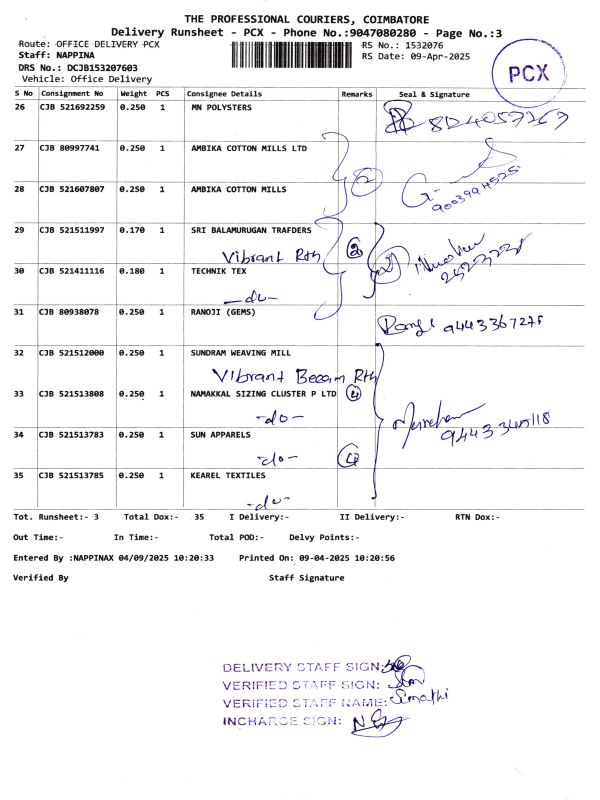 THE PROFESSIONAL COURIERS, COIMBATORE
Delivery Runsheet - PCX - Phone No.:9047080280 - Page No.:3
Route: OFFICE DELIVERY PCX RS No.: 1532076
Staff: NAPPINA RS Date: 09-Apr-2025
DRS No.: DCJB153207603
Vehicle: Office Delivery
PCX
S No Consignment No Weight PCS Consignee Details Remarks Seal & Signature
26 CJB 521692259 0.250 1 MN POLYSTERS
27 CJB 80997741 0.250 1 AMBIKA COTTON MILLS LTD
28 CJB 521607807 0.250 1 AMBIKA COTTON MILLS
9003994525
29 CJB 521511997 0.170 1 SRI BALAMURUGAN TRAFDERS
Vibrant Rth 2
30 CJB 521411116 0.180 1 TECHNIK TEX
-do-
31 CJB 80938078 0.250 1 RANOJI (GEMS)
32 CJB 521512000 0.250 1 SUNDRAM WEAVING MILL
Vibrant Rth
33 CJB 521513808 0.250 1 NAMAKKAL SIZING CLUSTER P LTD 4
-do-
34 CJB 521513783 0.250 1 SUN APPARELS
-do- 4
35 CJB 521513785 0.250 1 KEAREL TEXTILES
-do-
Tot. Runsheet:- 3 Total Dox:- 35 I Delivery:- II Delivery:- RTN Dox:-
Out Time:- In Time:- Total POD:- Delvy Points:-
Entered By :NAPPINAX 04/09/2025 10:20:33 Printed On: 09-04-2025 10:20:56
Verified By Staff Signature
DELIVERY STAFF SIGN:
VERIFIED STAFF SIGN:
VERIFIED STAFF NAME: Simathi
INCHARGE SIGN: